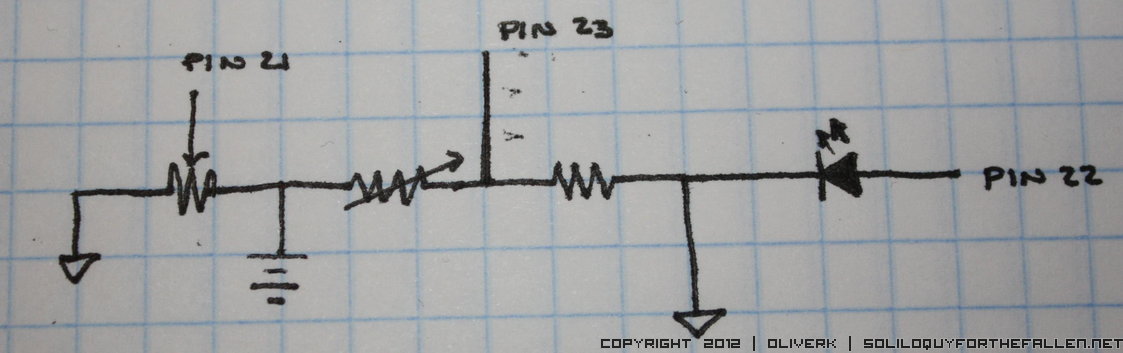 PIN 23
PIN 21
PIN 22
COPYRIGHT 2012 | OLIVERK | SOLILOQUYFORTHEFALLEN.NET